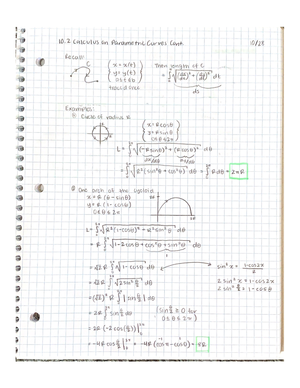 10.2 Calculus on Parametric Curves Cont. 10/23
Recall:
C
{ x = x(t)
y = y(t)
a ≤ t ≤ b }
Then length of C
= ∫ₐᵇ √((dx/dt)² + (dy/dt)²) dt
ds
Examples:
① Circle of radius R
{ x = R cosθ
y = R sinθ
0 ≤ θ ≤ 2π }
L = ∫₀^2π √((-R sinθ)² + (R cosθ)²) dθ
= ∫₀^2π √(R²(sin²θ + cos²θ)) dθ = ∫₀^2π R dθ = 2πR
② One arch of the cycloid
x = R (θ - sinθ)
y = R (1 - cosθ)
0 ≤ θ ≤ 2π
L = ∫₀^2π √(R²(1-cosθ)² + R² sin²θ) dθ
= R ∫₀^2π √(1 - 2cosθ + cos²θ + sin²θ) dθ
= √2 R ∫₀^2π √(1 - cosθ) dθ
sin²x = (1 - cos2x)/2
2 sin²x = 1 - cos2x
2 sin² θ/2 = 1 - cosθ
= √2 R ∫₀^2π √(2 sin² θ/2) dθ
= (√2)² R ∫₀^2π | sin θ/2 | dθ
= 2R ∫₀^2π sin θ/2 dθ
(sin θ/2 ≥ 0 for
0 ≤ θ ≤ 2π)
= 2R (-2 cos(θ/2)) |₀^2π
= -4R cos θ/2 |₀^2π = -4R (cos π - cos 0) = 8R